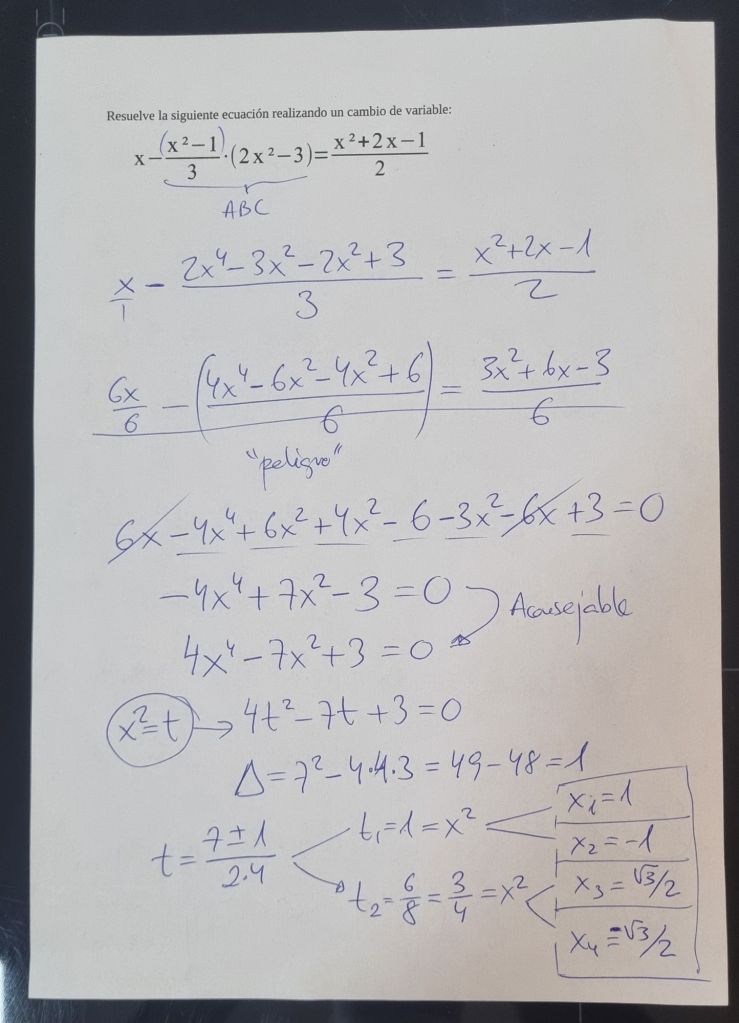 Resuelve la siguiente ecuación realizando un cambio de variable:
x−(x²−1)/3·(2x²−3)=(x²+2x−1)/2
ABC
x/1 − (2x⁴−3x²−2x²+3)/3 = (x²+2x−1)/2
6x/6 − (4x⁴−6x²−4x²+6)/6 = (3x²+6x−3)/6
"peligro"
6x−4x⁴+6x²+4x²−6−3x²−6x+3=0
−4x⁴+7x²−3=0
Aconsejable
4x⁴−7x²+3=0
x²=t → 4t²−7t+3=0
Δ=7²−4·4·3=49−48=1
t=(7±1)/(2·4)
t₁=1=x²
x₁=1
x₂=−1
t₂=6/8=3/4=x²
x₃=√3/2
x₄=−√3/2